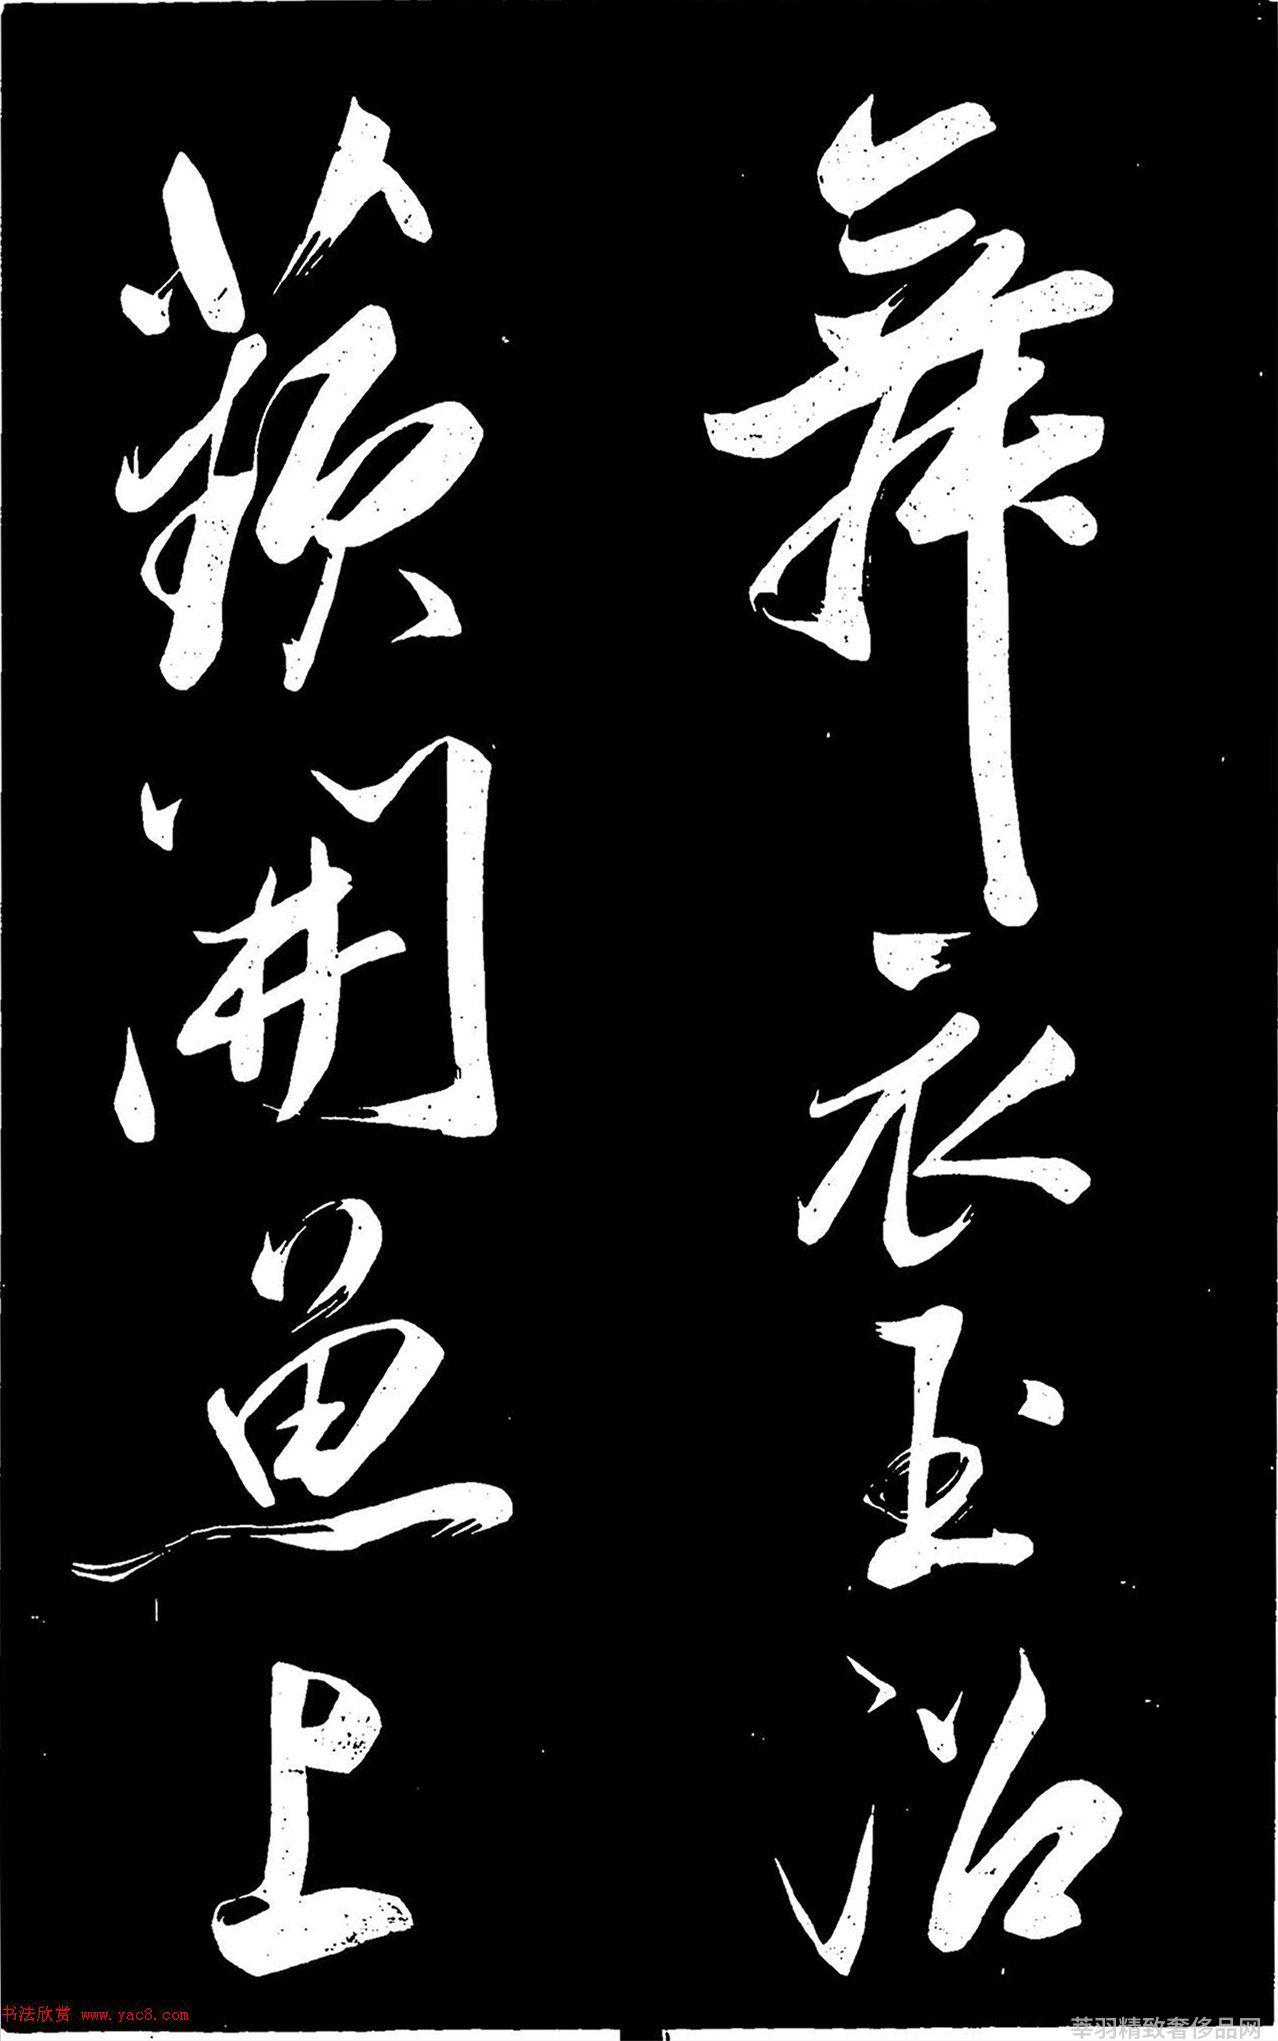 舞衣玉沼
蘋開魚上
书法欣赏 www.yac8.com
莘羽精致奢侈品网